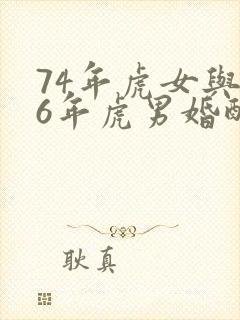 74年虎女與
6年虎男婚配
耿真